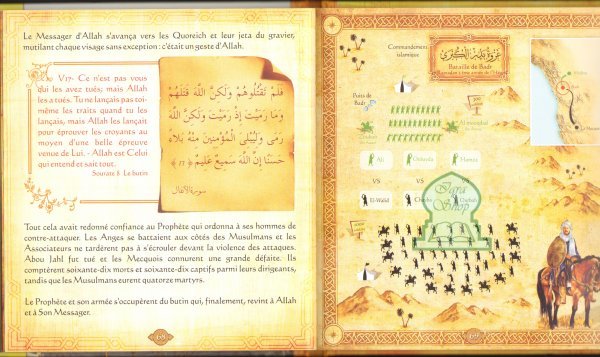 Le Messager d'Allah s'avança vers les Quoreich et leur jeta du gravier,
mutilant chaque visage sans exception : c'était un geste d'Allah.
V17- Ce n'est pas vous
qui les avez tués; mais Allah
les a tués. Tu ne lançais pas toi-
même les traits quand tu les
lançais, mais Allah les lançait
pour éprouver les croyants au
moyen d'une belle épreuve
venue de Lui. - Allah est Celui
qui entend et sait tout.
Sourate 8 Le butin
فَلَمْ تَقْتُلُوهُمْ وَلَٰكِنَّ اللَّهَ قَتَلَهُمْ
وَمَا رَمَيْتَ إِذْ رَمَيْتَ وَلَٰكِنَّ اللَّهَ
رَمَىٰ وَلِيُبْلِيَ الْمُؤْمِنِينَ مِنْهُ بَلَاءً
حَسَنًا إِنَّ اللَّهَ سَمِيعٌ عَلِيمٌ ﴿١٧﴾
سورة الأنفال
Tout cela avait redonné confiance au Prophète qui ordonna à ses hommes de
contre-attaquer. Les Anges se battaient aux côtés des Musulmans et les
Associateurs ne tardèrent pas à s'écrouler devant la violence des attaques.
Abou Jahl fut tué et les Mecquois connurent une grande défaite. Ils
comptèrent soixante-dix morts et soixante-dix captifs parmi leurs dirigeants,
tandis que les Musulmans eurent quatorze martyrs.
Le Prophète et son armée s'occupèrent du butin qui, finalement, revint à Allah
et à Son Messager.
68
Commandement
islamique
غزوة بدر الكبرى
Bataille de Badr
Puits de
Badr
Ali
Oubayda
Hamza
VS
VS
VS
El-Walid
Chayba
Outbah
Iqra
Shop
69